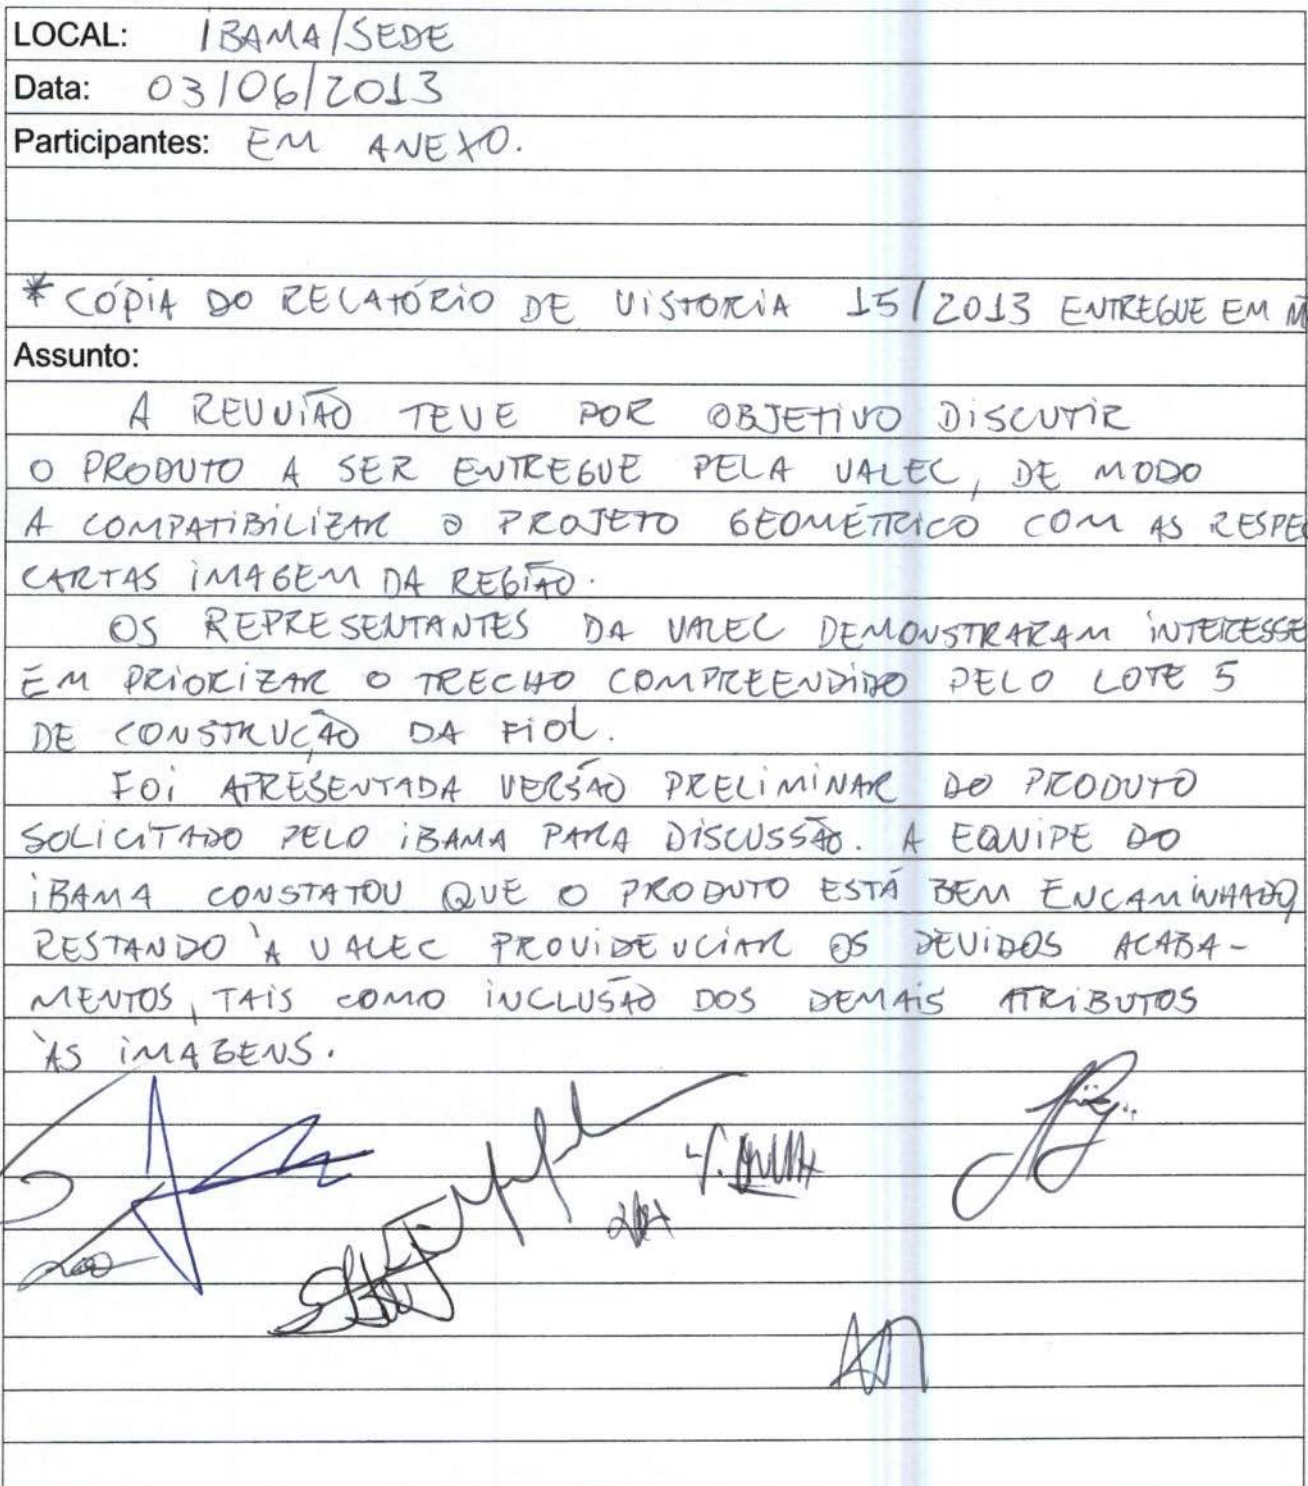 LOCAL: IBAMA/SEDE
Data: 03/06/2013
Participantes: EM ANEXO.
* CÓPIA DO RELATÓRIO DE VISTORIA 15/2013 ENTREGUE EM M
Assunto:
A REUNIÃO TEVE POR OBJETIVO DISCUTIR
O PRODUTO A SER ENTREGUE PELA VALEC, DE MODO
A COMPATIBILIZAR O PROJETO GEOMÉTRICO COM AS RESPEC
CARTAS IMAGEM DA REGIÃO.
OS REPRESENTANTES DA VALEC DEMONSTRARAM INTERESSE
EM PRIORIZAR O TRECHO COMPREENDIDO PELO LOTE 5
DE CONSTRUÇÃO DA FIOL.
FOI APRESENTADA VERSÃO PRELIMINAR DO PRODUTO
SOLICITADO PELO IBAMA PARA DISCUSSÃO. A EQUIPE DO
IBAMA CONSTATOU QUE O PRODUTO ESTÁ BEM ENCAMINHADO,
RESTANDO À VALEC PROVIDENCIAR OS DEVIDOS ACABA-
MENTOS, TAIS COMO INCLUSÃO DOS DEMAIS ATRIBUTOS
ÀS IMAGENS.